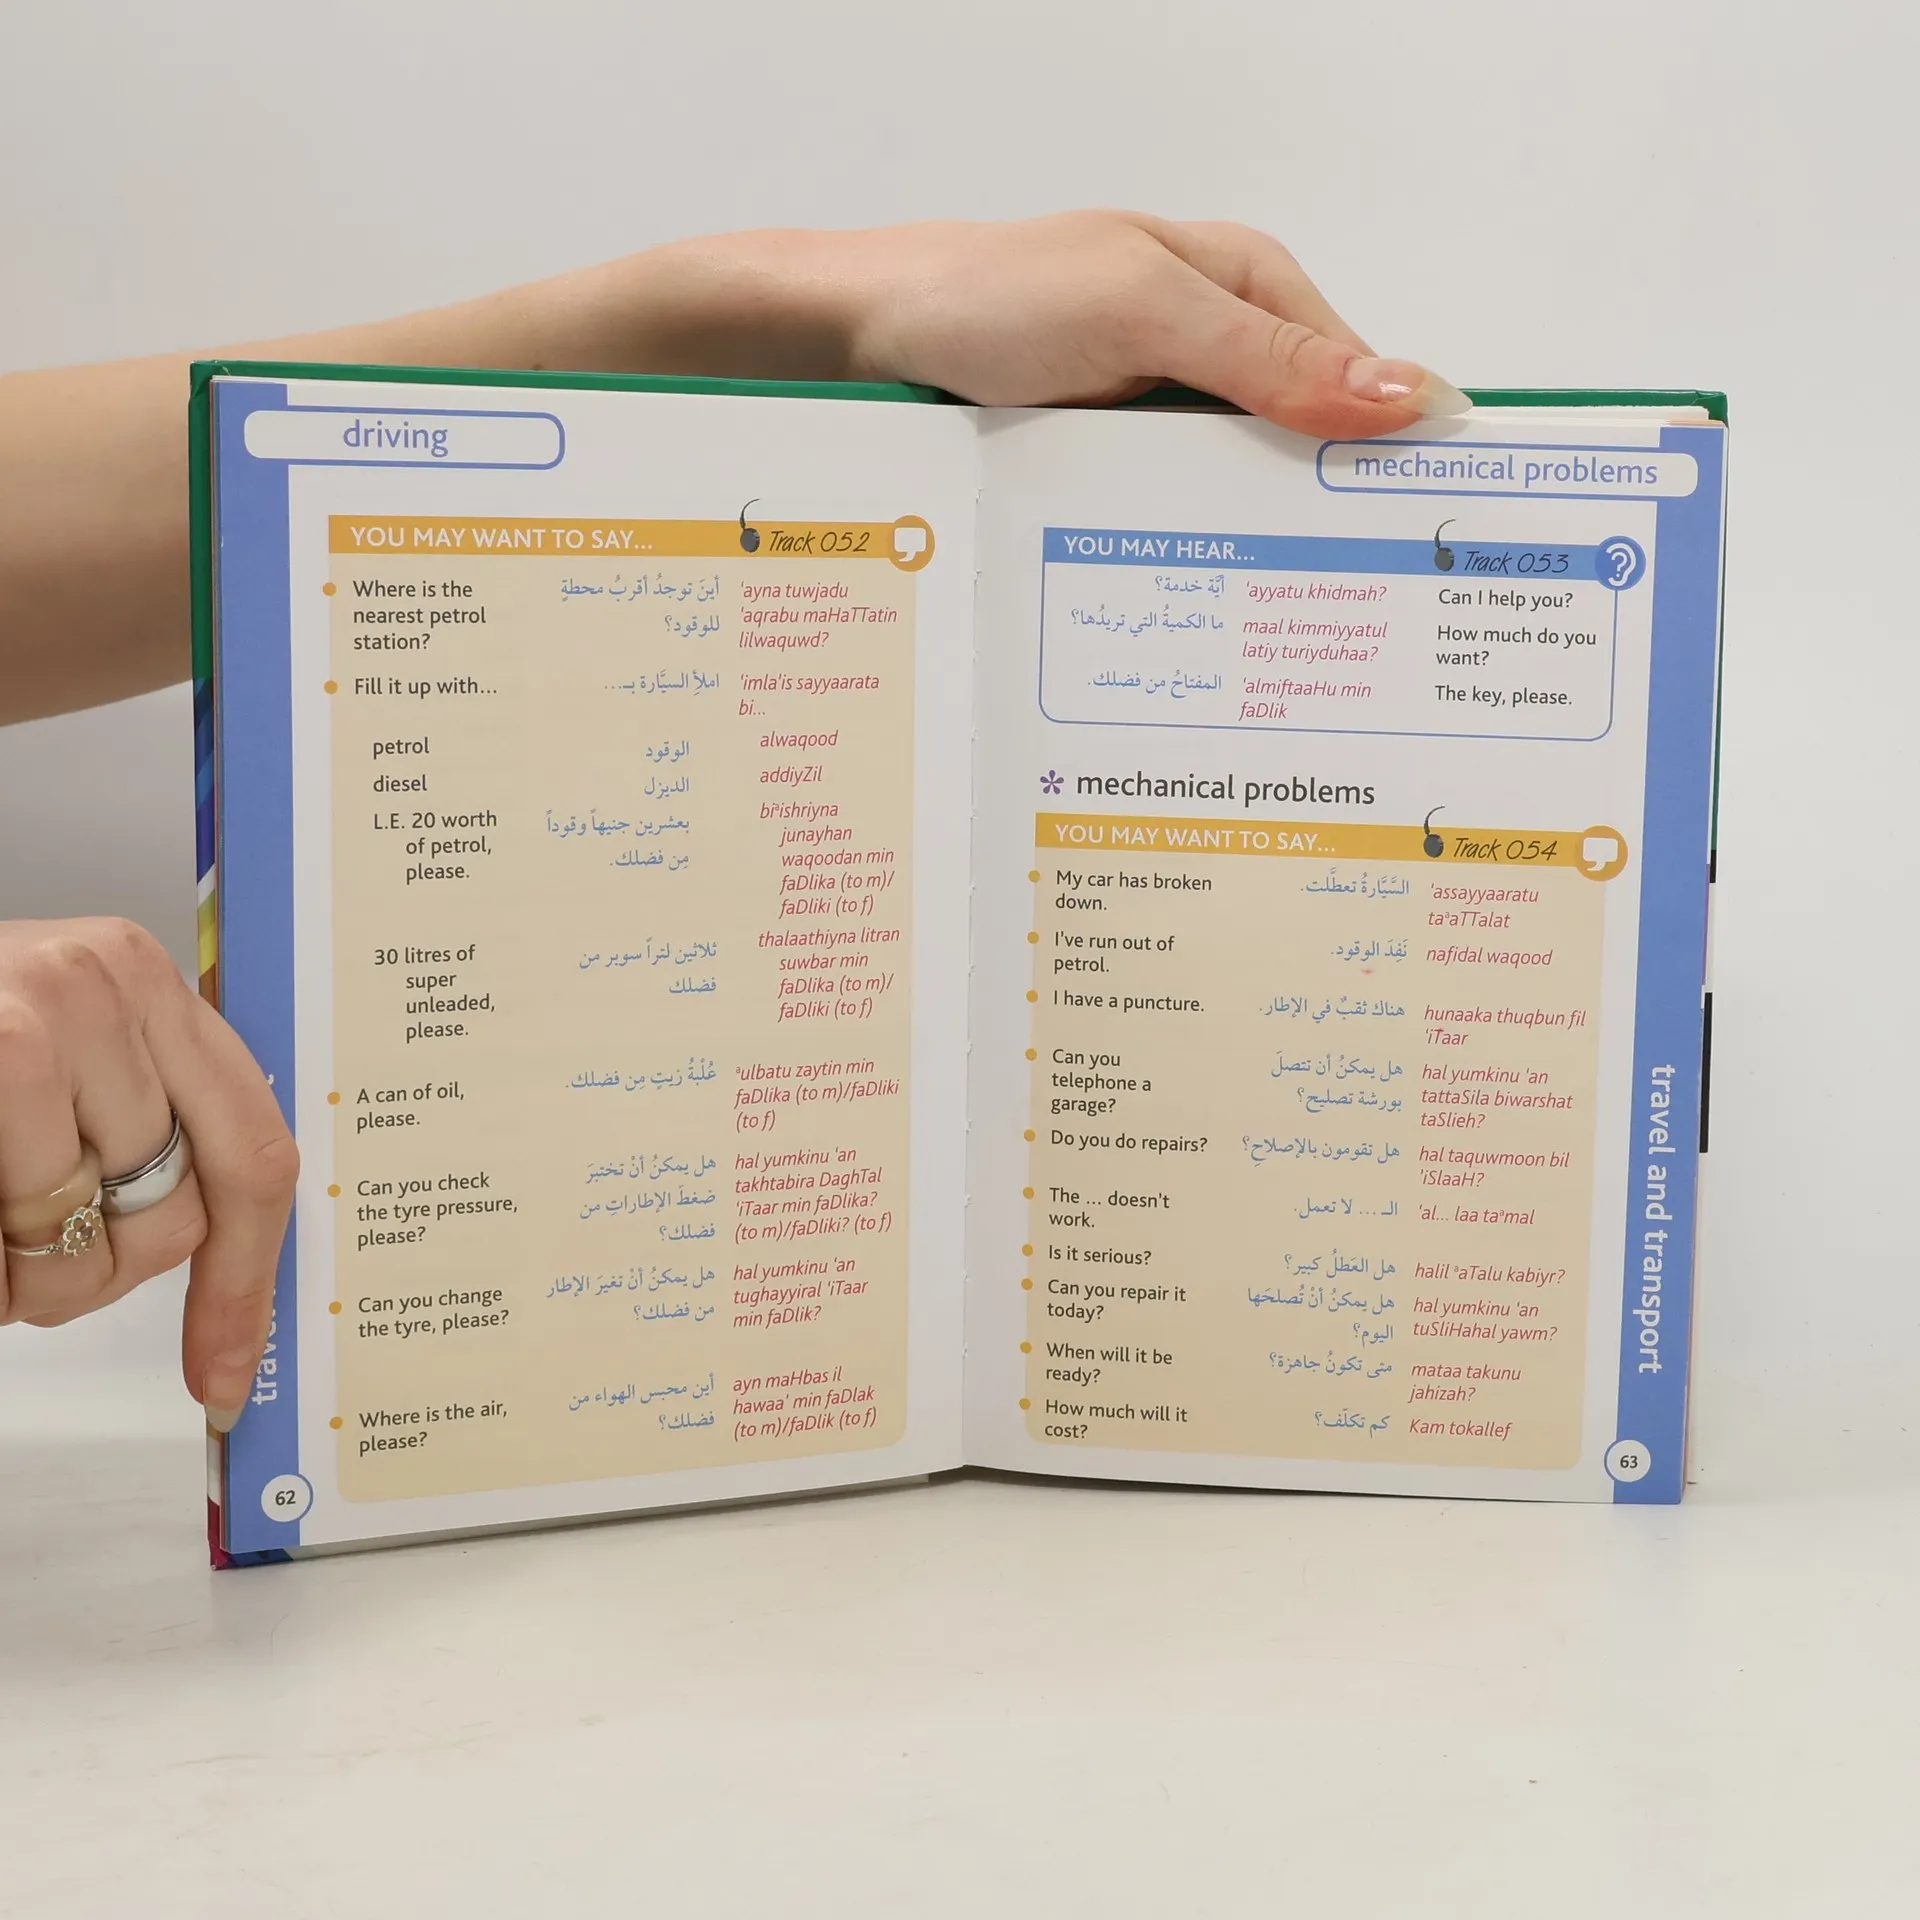 driving
YOU MAY WANT TO SAY...
Track 052
Where is the
nearest petrol
station?
أينَ توجدُ أقربُ محطةٍ
للوقود؟
'ayna tuwjadu
'aqrabu maHaTTatin
lilwaquwd?
Fill it up with...
املأِ السيَّارة بـ...
'imla'is sayyaarata
bi...
petrol
الوقود
alwaqood
diesel
الديزل
addiyZil
L.E. 20 worth
of petrol,
please.
بعشرين جنيهاً وقوداً
مِن فضلك.
biᵃishriyna
junayhan
waqoodan min
faDlika (to m)/
faDliki (to f)
30 litres of
super
unleaded,
please.
ثلاثين لتراً سوبر من
فضلك
thalaathiyna litran
suwbar min
faDlika (to m)/
faDliki (to f)
A can of oil,
please.
عُلْبةُ زيتٍ مِن فضلك.
ᵃulbatu zaytin min
faDlika (to m)/faDliki
(to f)
Can you check
the tyre pressure,
please?
هل يمكنُ أنْ تختبرَ
ضغطَ الإطاراتِ من
فضلك؟
hal yumkinu 'an
takhtabira DaghTal
'iTaar min faDlika?
(to m)/faDliki? (to f)
Can you change
the tyre, please?
هل يمكنُ أنْ تغيرَ الإطار
من فضلك؟
hal yumkinu 'an
tughayyiral 'iTaar
min faDlik?
Where is the air,
please?
أين محبس الهواء من
فضلك؟
ayn maHbas il
hawaa' min faDlak
(to m)/faDlik (to f)
62
mechanical problems
YOU MAY HEAR...
Track 053
أيَّة خدمة؟
'ayyatu khidmah?
Can I help you?
ما الكميةُ التي تريدُها؟
maal kimmiyyatul
latiy turiyduhaa?
How much do you
want?
المفتاحُ من فضلك.
'almiftaaHu min
faDlik
The key, please.
* mechanical problems
YOU MAY WANT TO SAY...
Track 054
My car has broken
down.
السَّيَّارةُ تعطَّلت.
'assayyaaratu
taᵃaTTalat
I've run out of
petrol.
نَفِدَ الوقود.
nafidal waqood
I have a puncture.
هناك ثقبٌ في الإطار.
hunaaka thuqbun fil
'iTaar
Can you
telephone a
garage?
هل يمكنُ أن تتصلَ
بورشة تصليح؟
hal yumkinu 'an
tattaSila biwarshat
taSlieh?
Do you do repairs?
هل تقومون بالإصلاحِ؟
hal taquwmoon bil
'iSlaaH?
The ... doesn't
work.
الـ ... لا تعمل.
'al... laa taᵃmal
Is it serious?
هل العَطلُ كبير؟
halil ᵃaTalu kabiyr?
Can you repair it
today?
هل يمكنُ أنْ تُصلحَها
اليوم؟
hal yumkinu 'an
tuSliHahal yawm?
When will it be
ready?
متى تكونُ جاهزة؟
mataa takunu
jahizah?
How much will it
cost?
كم تكلّف؟
Kam tokallef
travel and transport
63